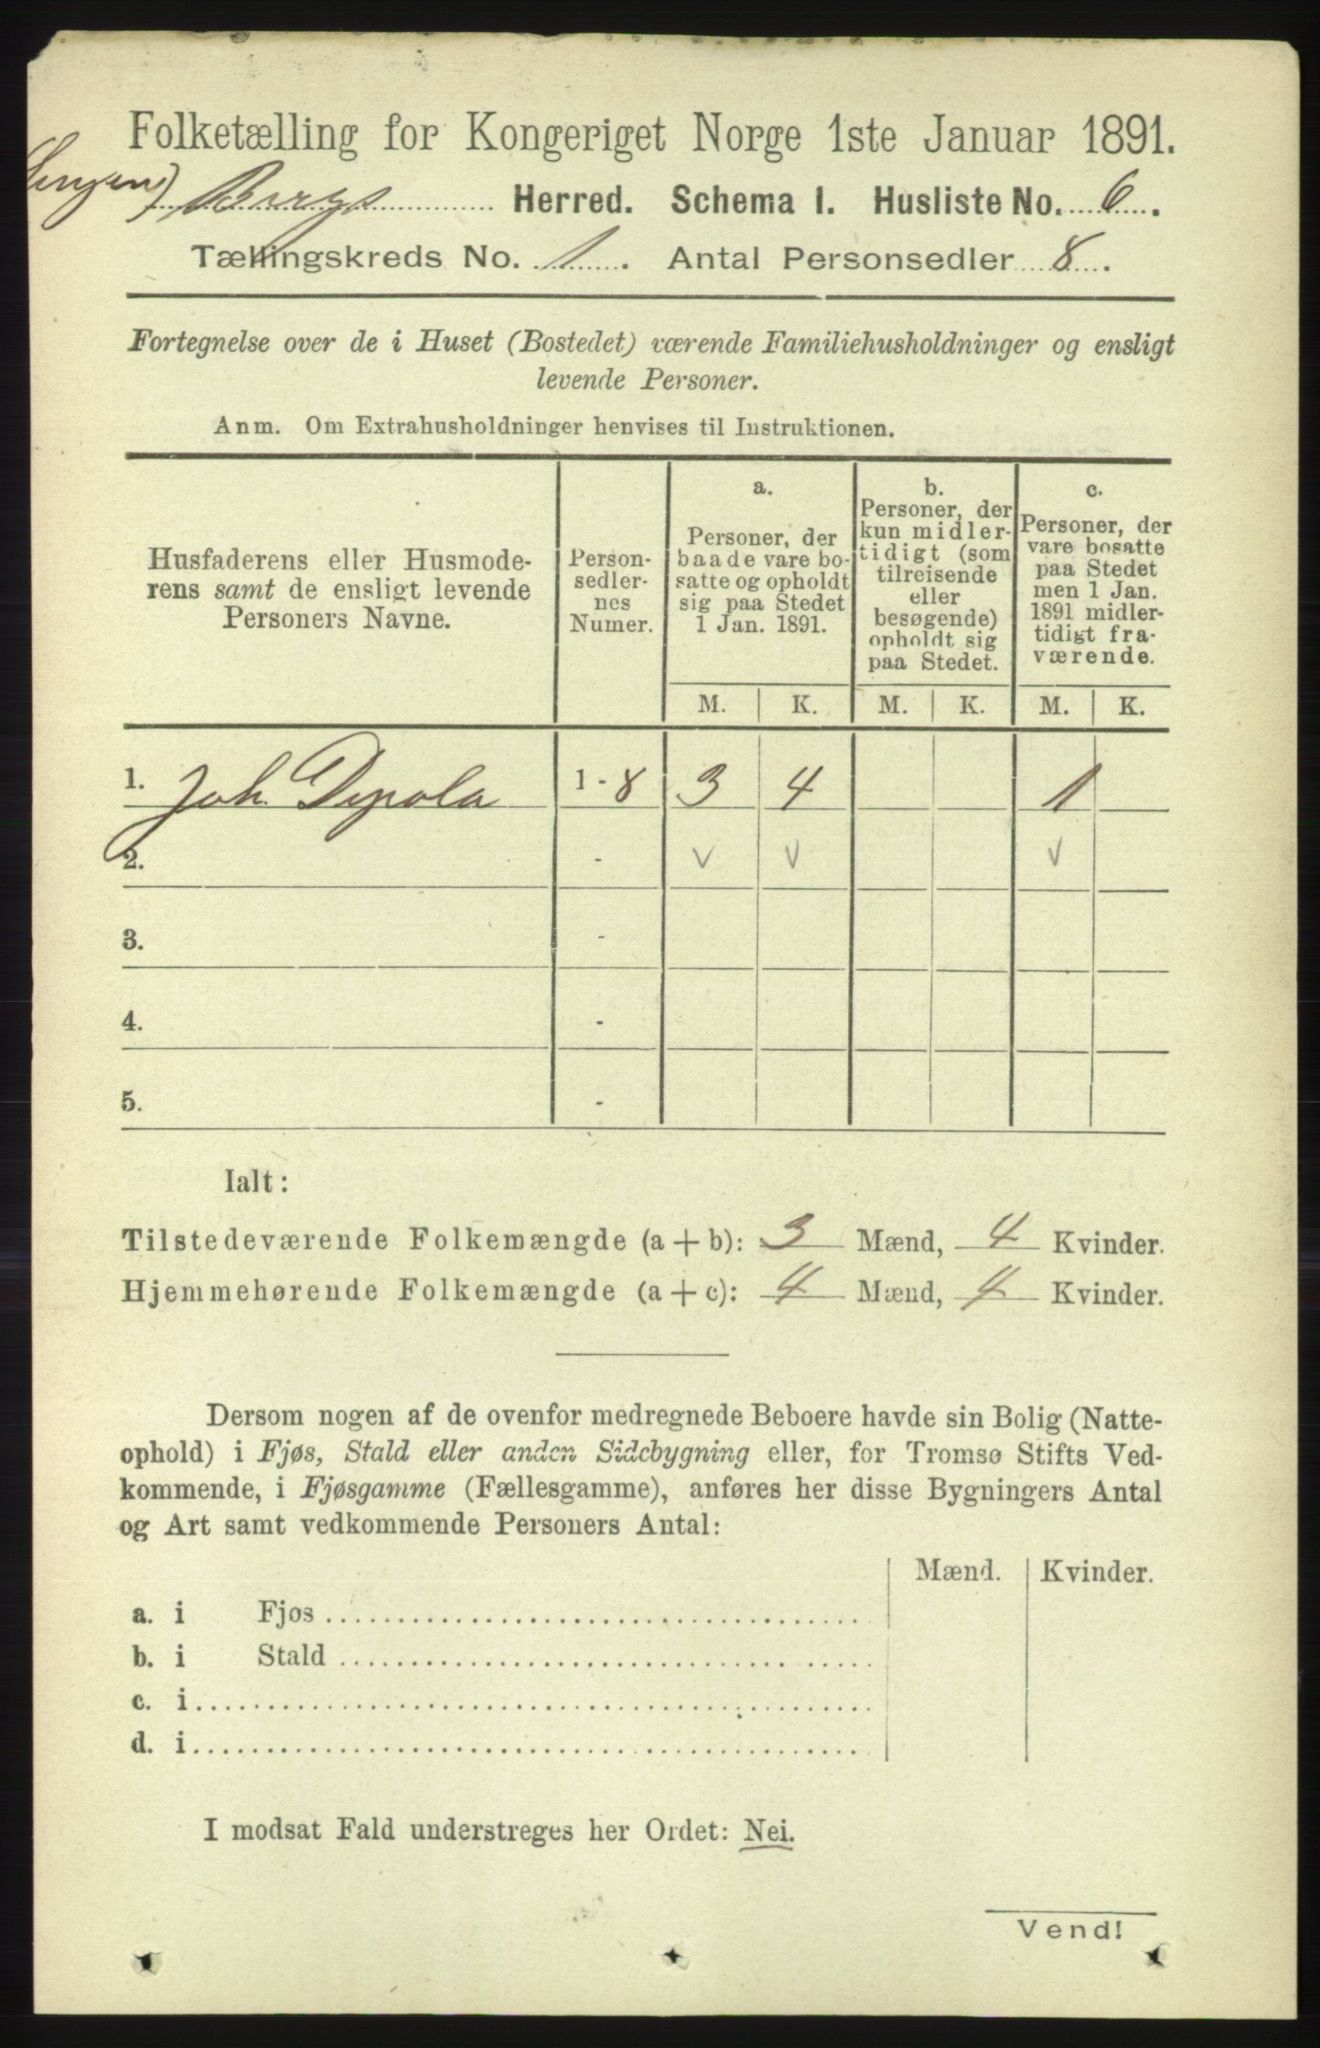 Folketælling for Kongeriget Norge 1ste Januar 1891.
Bergs Herred. Schema I. Husliste No. 6.
Tællingskreds No. 1. Antal Personsedler 8.
Fortegnelse over de i Huset (Bostedet) værende Familiehusholdninger og ensligt
levende Personer.
Anm. Om Extrahusholdninger henvises til Instruktionen.
Husfaderens eller Husmode-
rens samt de ensligt levende
Personers Navne.
Person-
sedler-
nes
Numer.
a.
Personer, der
baade vare bo-
satte og opholdt
sig paa Stedet
1 Jan. 1891.
b.
Personer, der
kun midler-
tidigt (som
tilreisende
eller
besøgende)
opholdt sig
paa Stedet.
c.
Personer, der
vare bosatte
paa Stedet
men 1 Jan.
1891 midler-
tidigt fra-
værende.
M. K. M. K. M. K.
1. Joh. Dypola 1-8 3 4 1
2. - v v v
3. -
4. -
5. -
Ialt:
Tilstedeværende Folkemængde (a+b): 3 Mænd, 4 Kvinder.
Hjemmehørende Folkemængde (a+c): 4 Mænd, 4 Kvinder.
Dersom nogen af de ovenfor medregnede Beboere havde sin Bolig (Natte-
ophold) i Fjøs, Stald eller anden Sidebygning eller, for Tromsø Stifts Ved-
kommende, i Fjøsgamme (Fællesgamme), anføres her disse Bygningers Antal
og Art samt vedkommende Personers Antal:
Mænd. Kvinder.
a. i Fjøs
b. i Stald
c. i
d. i
I modsat Fald understreges her Ordet: Nei.
Vend!